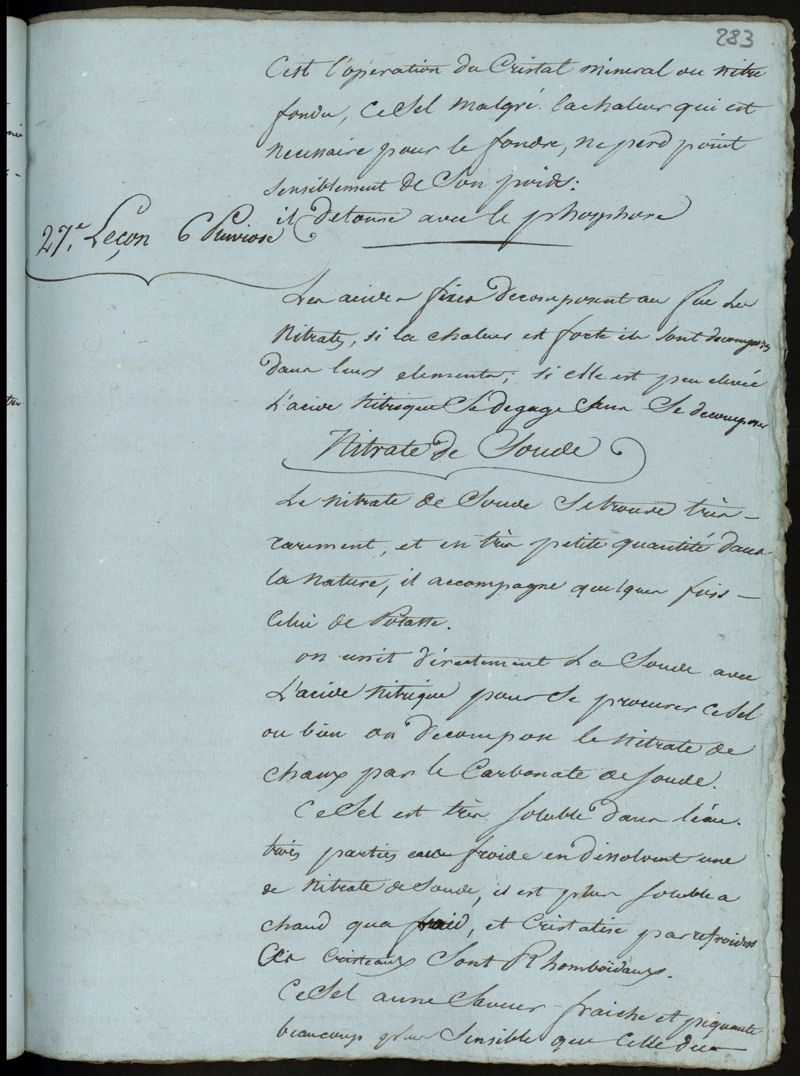 283
C'est l'operation du Cristal mineral ou nitre
fondu, Ce Sel malgré la chaleur qui est
necessaire pour le fondre, ne perd point
sensiblement de Son poids:
il detonne avec le phosphore
27.e Leçon 6 Pluviose
Les acides fixes decomposent au feu Les
Nitrates, si la chaleur est forte ils sont decomposés
dans leurs elements; si elle est peu elevée
L'acide Nitrique Se degage Sans Se decomposer
Nitrate de Soude
Le Nitrate de Soude Se trouve très-
rarement, et en très petite quantité dans
la Nature, il accompagne quelques fois -
Celui de Potasse.
on unit directement La Soude avec
L'acide Nitrique pour Se procurer Ce Sel
ou bien on decompose le Nitrate de
Chaux par le Carbonate de Soude.
Ce Sel est très Soluble dans l'eau.
trois parties eau froide en dissolvent une
de Nitrate de Soude, il est plus Soluble a
Chaud qu'a froid, et Cristalise par refroidiss
Ces Cristeaux Sont Rhomboïdaux.
Ce Sel a une Saveur fraiche et piquante
beaucoup plus Sensible que Celle du